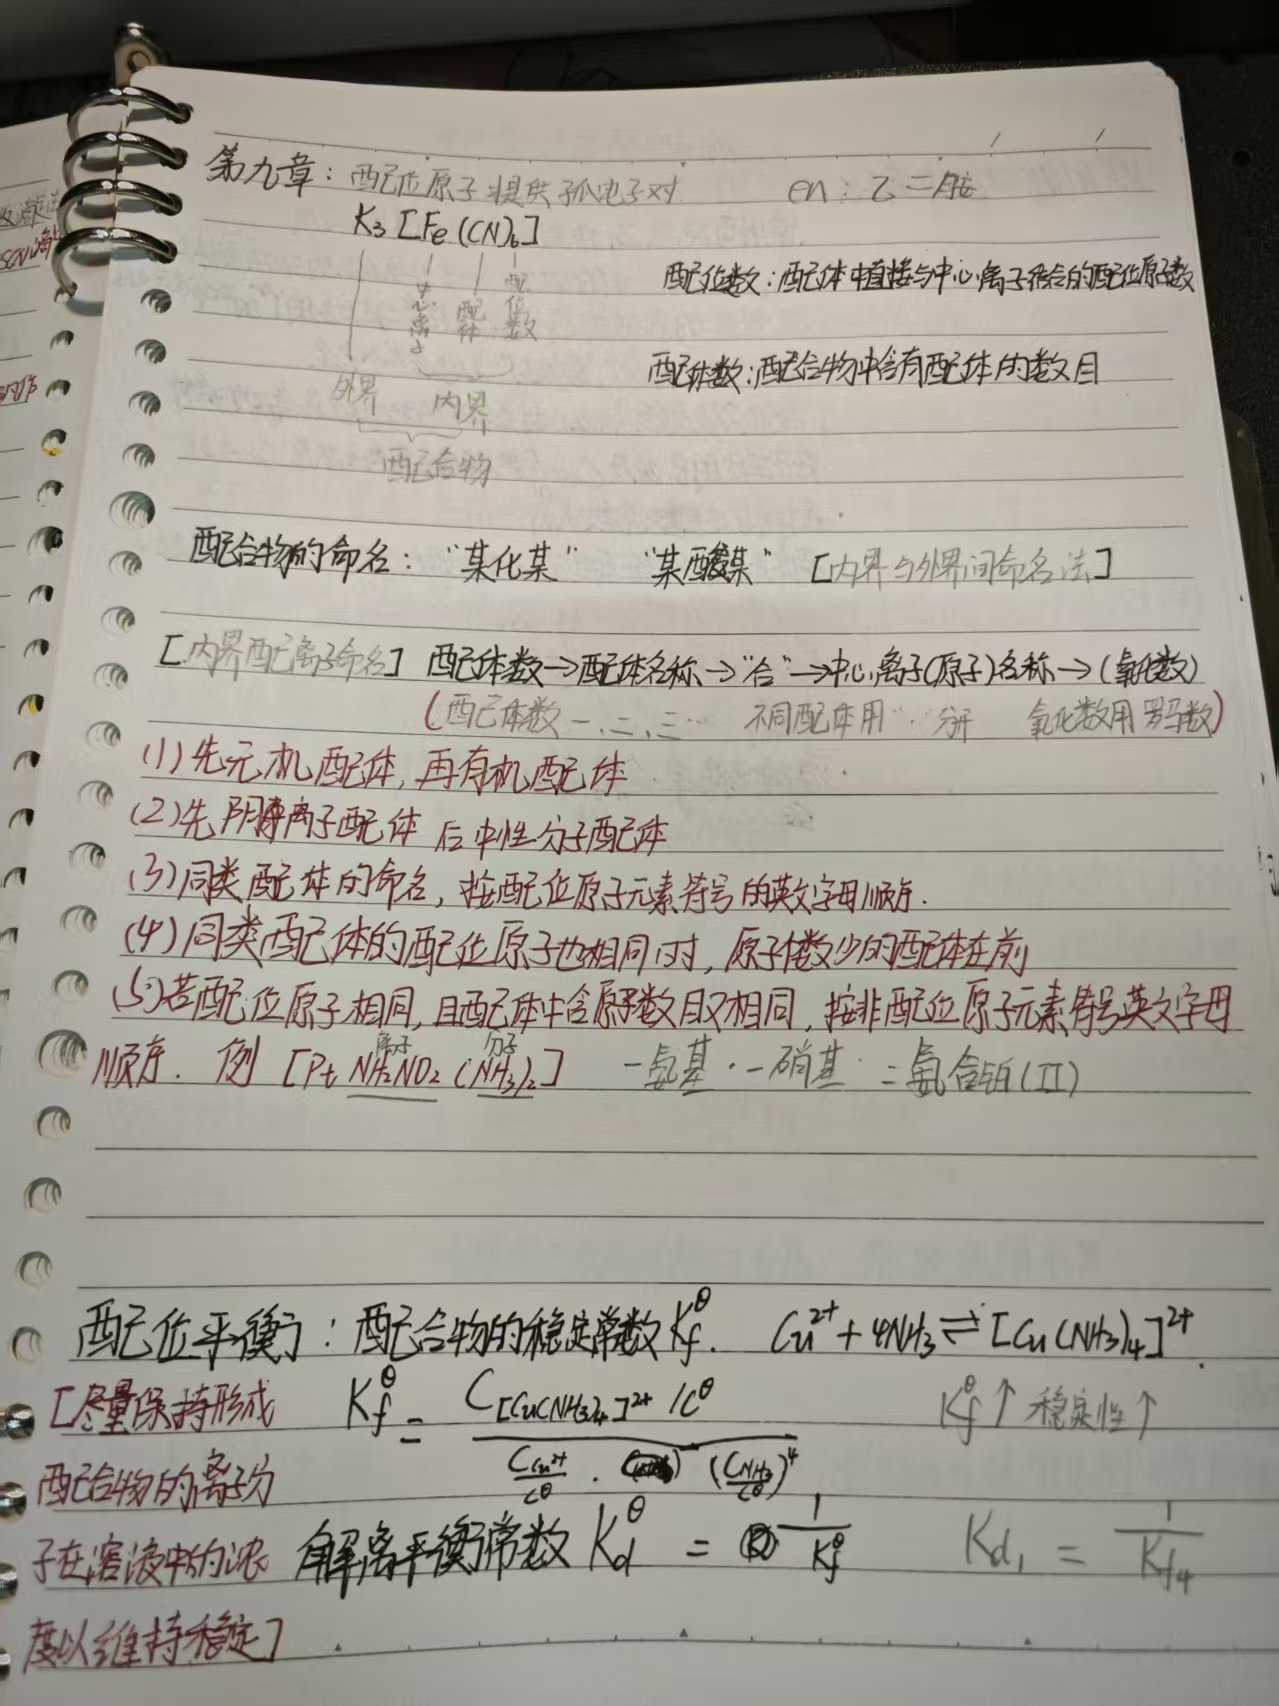 第九章：配位原子提供孤电子对 en：乙二胺
K₃[Fe(CN)₆]
中心离子 配体 配位数
配位数：配体中直接与中心离子结合的配位原子数
配体数：配合物中含有配体的数目
外界 内界
配合物
配合物的命名：“某化某” “某酸某” [内界与外界间命名法]
[内界配离子命名] 配体数→配体名称→“合”→中心离子(原子)名称→(氧化数)
(配体数一、二、三… 不同配体用“·”分开 氧化数用罗马数)
(1)先无机配体，再有机配体
(2)先阴离子配体 后中性分子配体
(3)同类配体的命名，按配位原子元素符号的英文字母顺序.
(4)同类配体的配位原子也相同时，原子数少的配体在前
(5)若配位原子相同，且配体中含原子数目又相同，按非配位原子元素符号英文字母
离子 分子
顺序. 例 [Pt NH₂NO₂(NH₃)₂] 一氨基·一硝基·二氨合铂(II)
配位平衡：配合物的稳定常数K_f^θ. Cu²⁺+4NH₃⇌[Cu(NH₃)₄]²⁺.
[尽量保持形成 K_f^θ = C_[Cu(NH₃)₄]²⁺/C^θ K_f^θ↑ 稳定性↑
配合物的离子分 C_Cu²⁺/C^θ · (C_NH₃/C^θ)⁴
子在溶液中的浓 解离平衡常数 K_d^θ = 1/K_f^θ K_d₁ = 1/K_f₄
度以维持稳定]